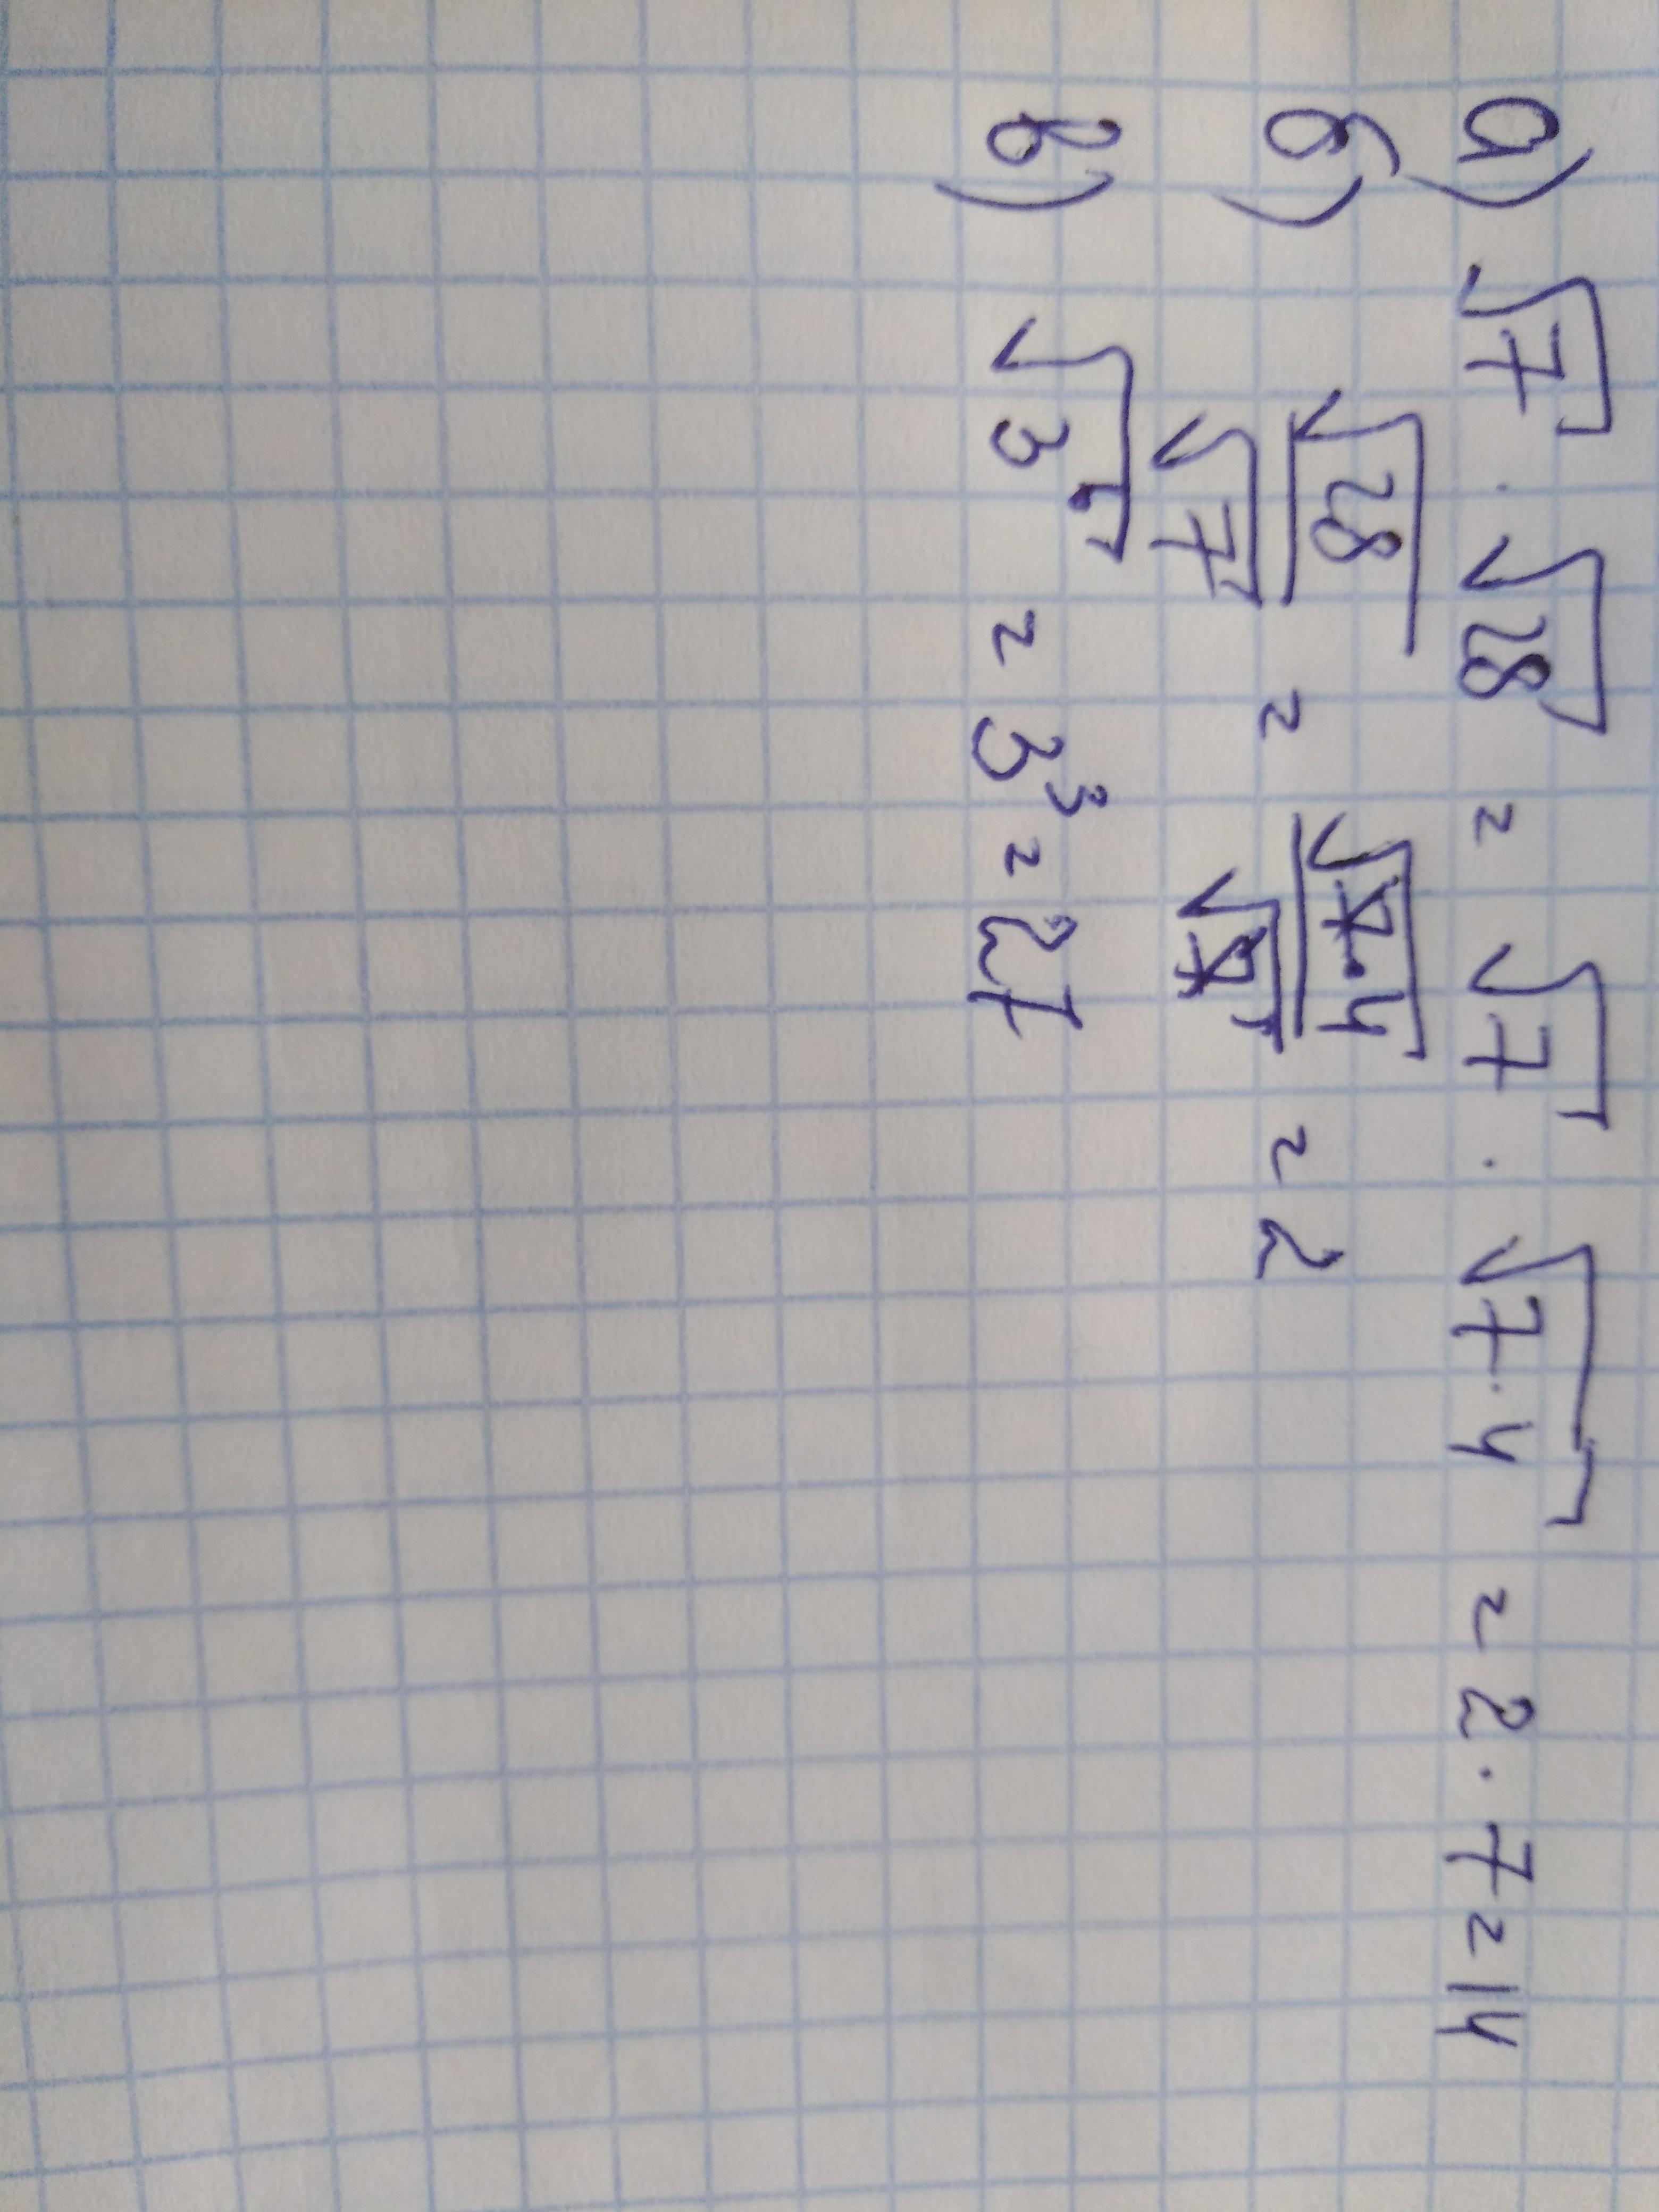 а) √7 · √28 = √7 · √7·4 = 2 · 7 = 14
б) √28/√7 = √7·4/√7 = 2
в) √3⁶ = 3³ = 27